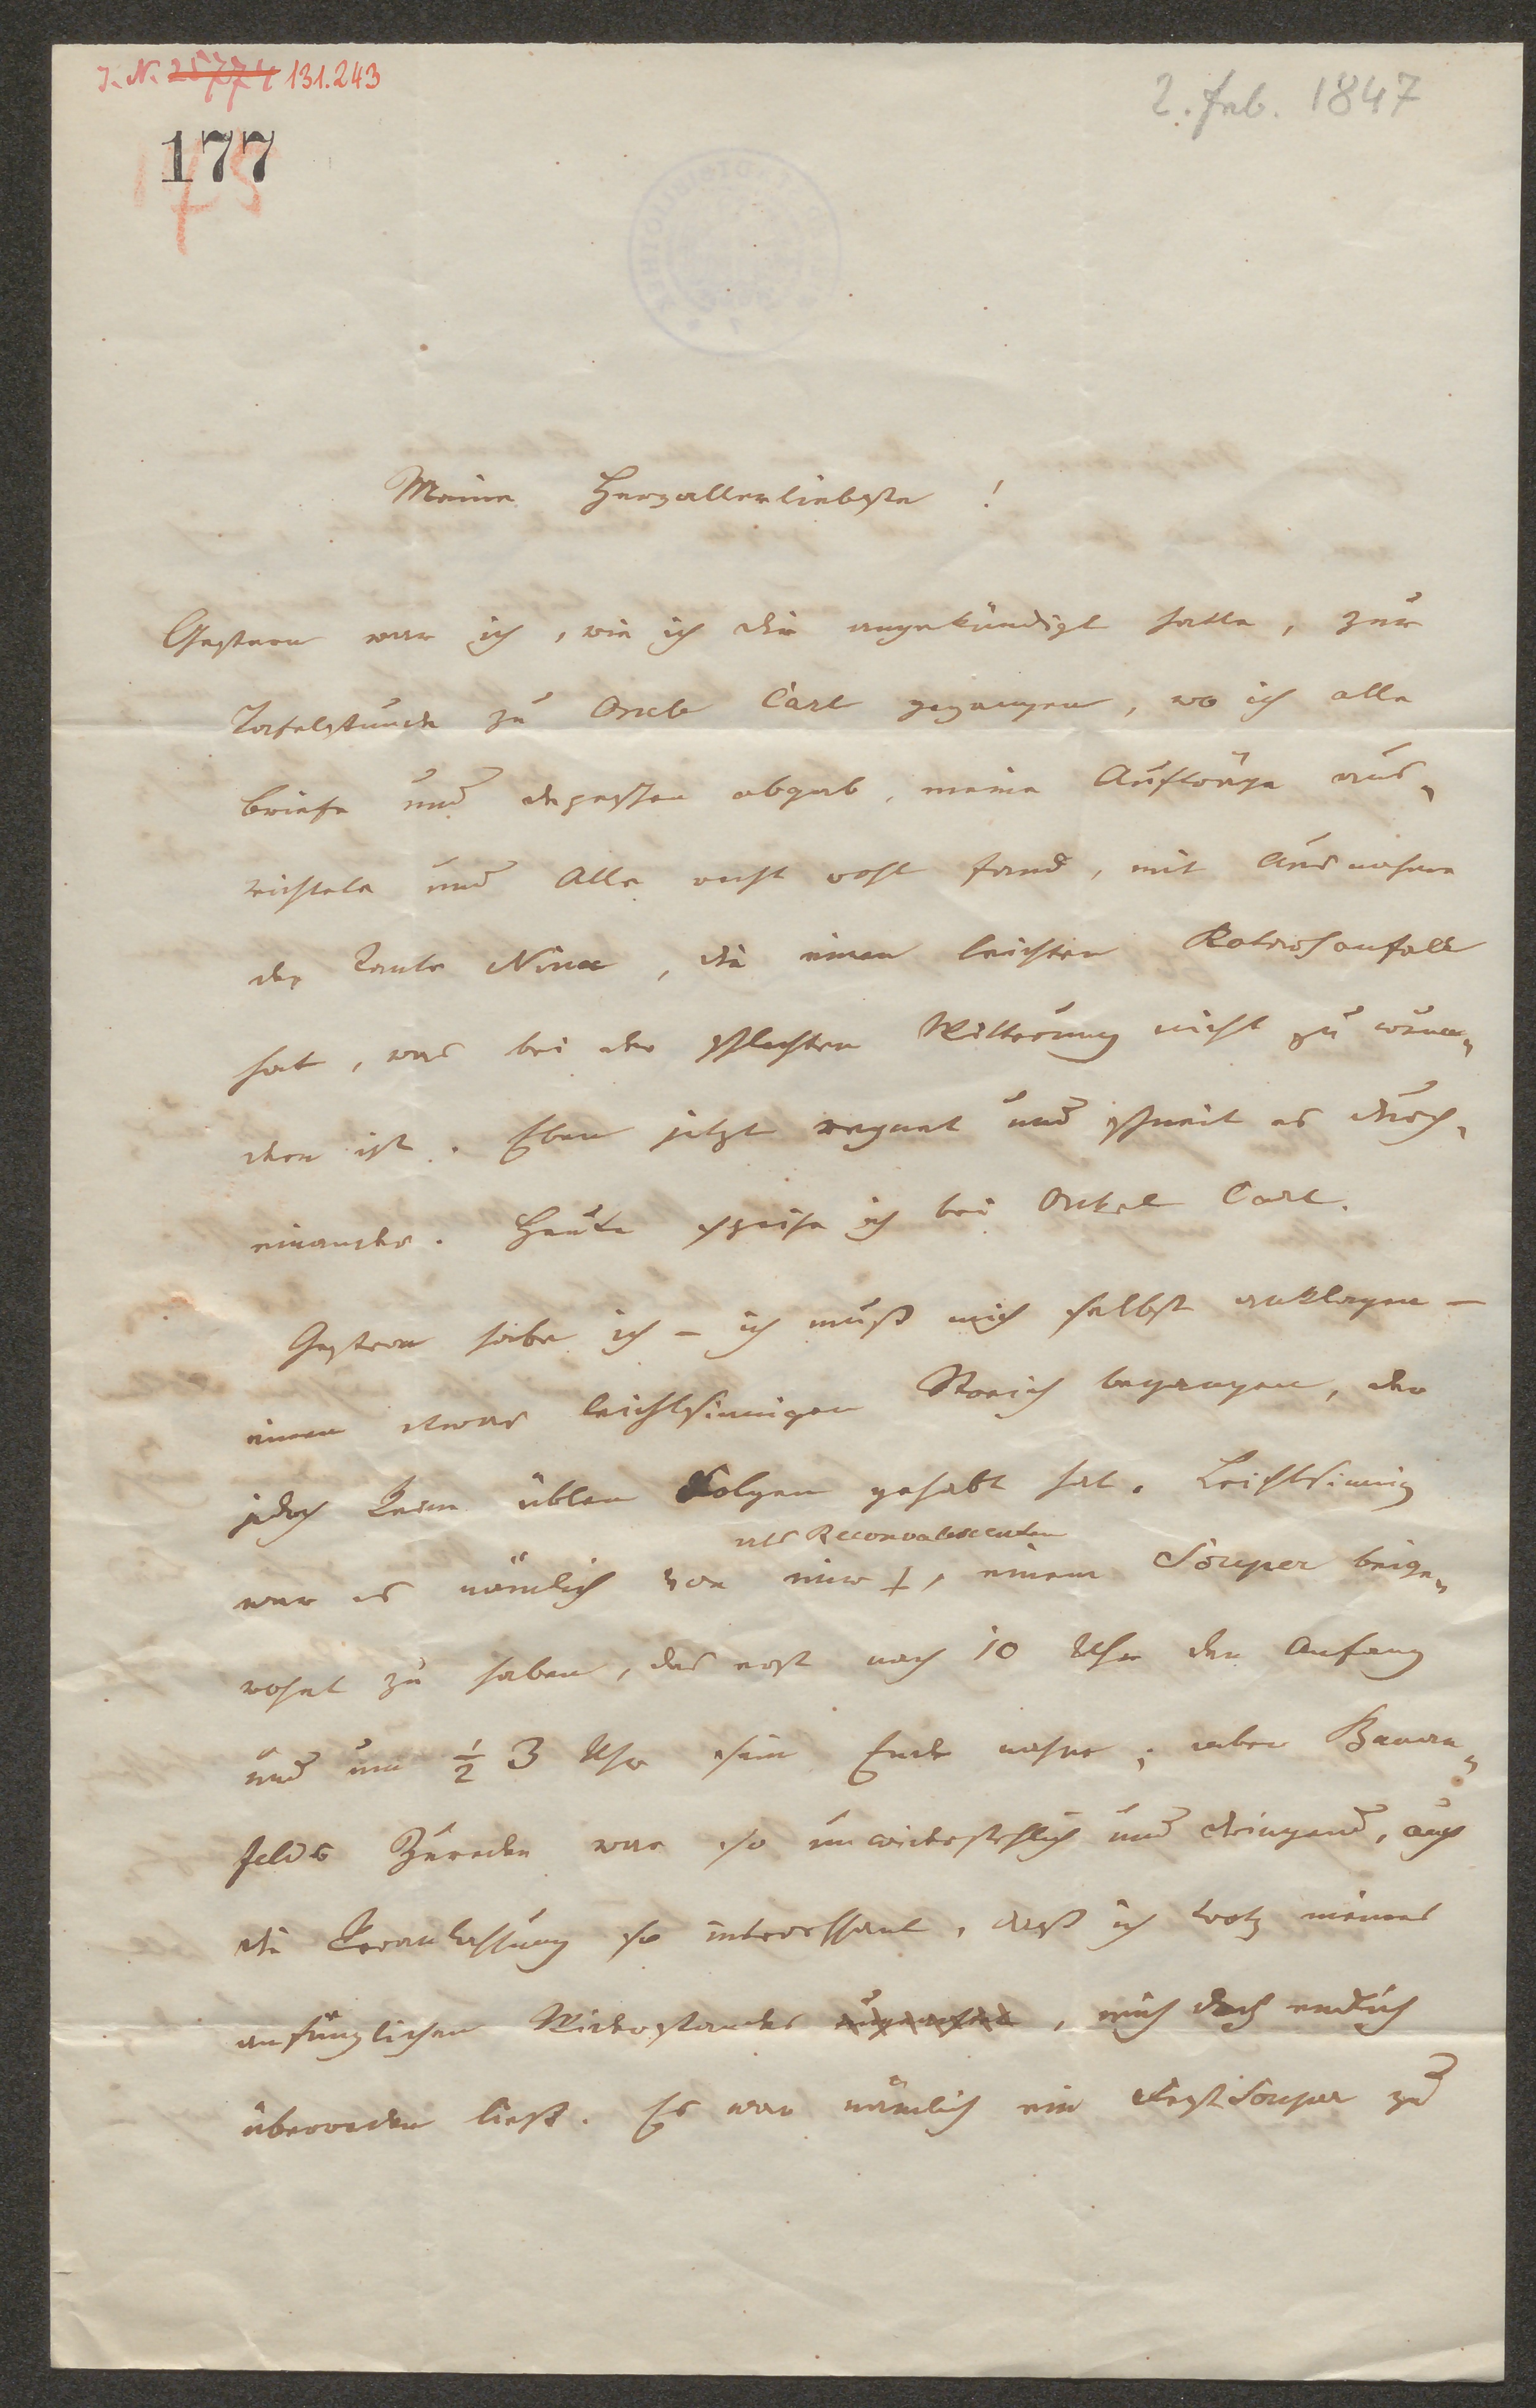 I. N. 25774 131.243
2. Feb. 1847
177
175
Meine Herzallerliebste !
Gestern war ich, wie ich dir angekündigt hatte, zur
Tafelstunde zu Onkle Carl gegangen, wo ich alle
Briefe und depeschen abgab, meine Aufträge aus-
richtete und Alle recht wohl fand, mit Ausnahme
der Tante Nina, die einen leichten Katarrhanfall
hat, was bei der schlechten Witterung nicht zu wun-
dern ist. Eben jetzt regnet und schneit es durch-
einander. Heute speise ich bei Onkel Carl.
Gestern habe ich – ich muß mich selbst anklagen –
einen etwas leichtsinnigen Streich begangen, der
jedoch keine üblen Folgen gehabt hat. Leichtsinnig
als Reconvalescenten
war es nämlich von mir , einem Souper beige-
wohnt zu haben, das erst nach 10 Uhr den Anfang
und um ½ 3 Uhr sein Ende nahm; aber Bauern-
felds Zureden war so unwiderstehlich und dringend, auch
die Veranlassung so interessant, daß ich trotz meines
anfänglichen Widerstandes , mich doch endlich
überreden ließ. Es war nämlich ein Festsouper zu